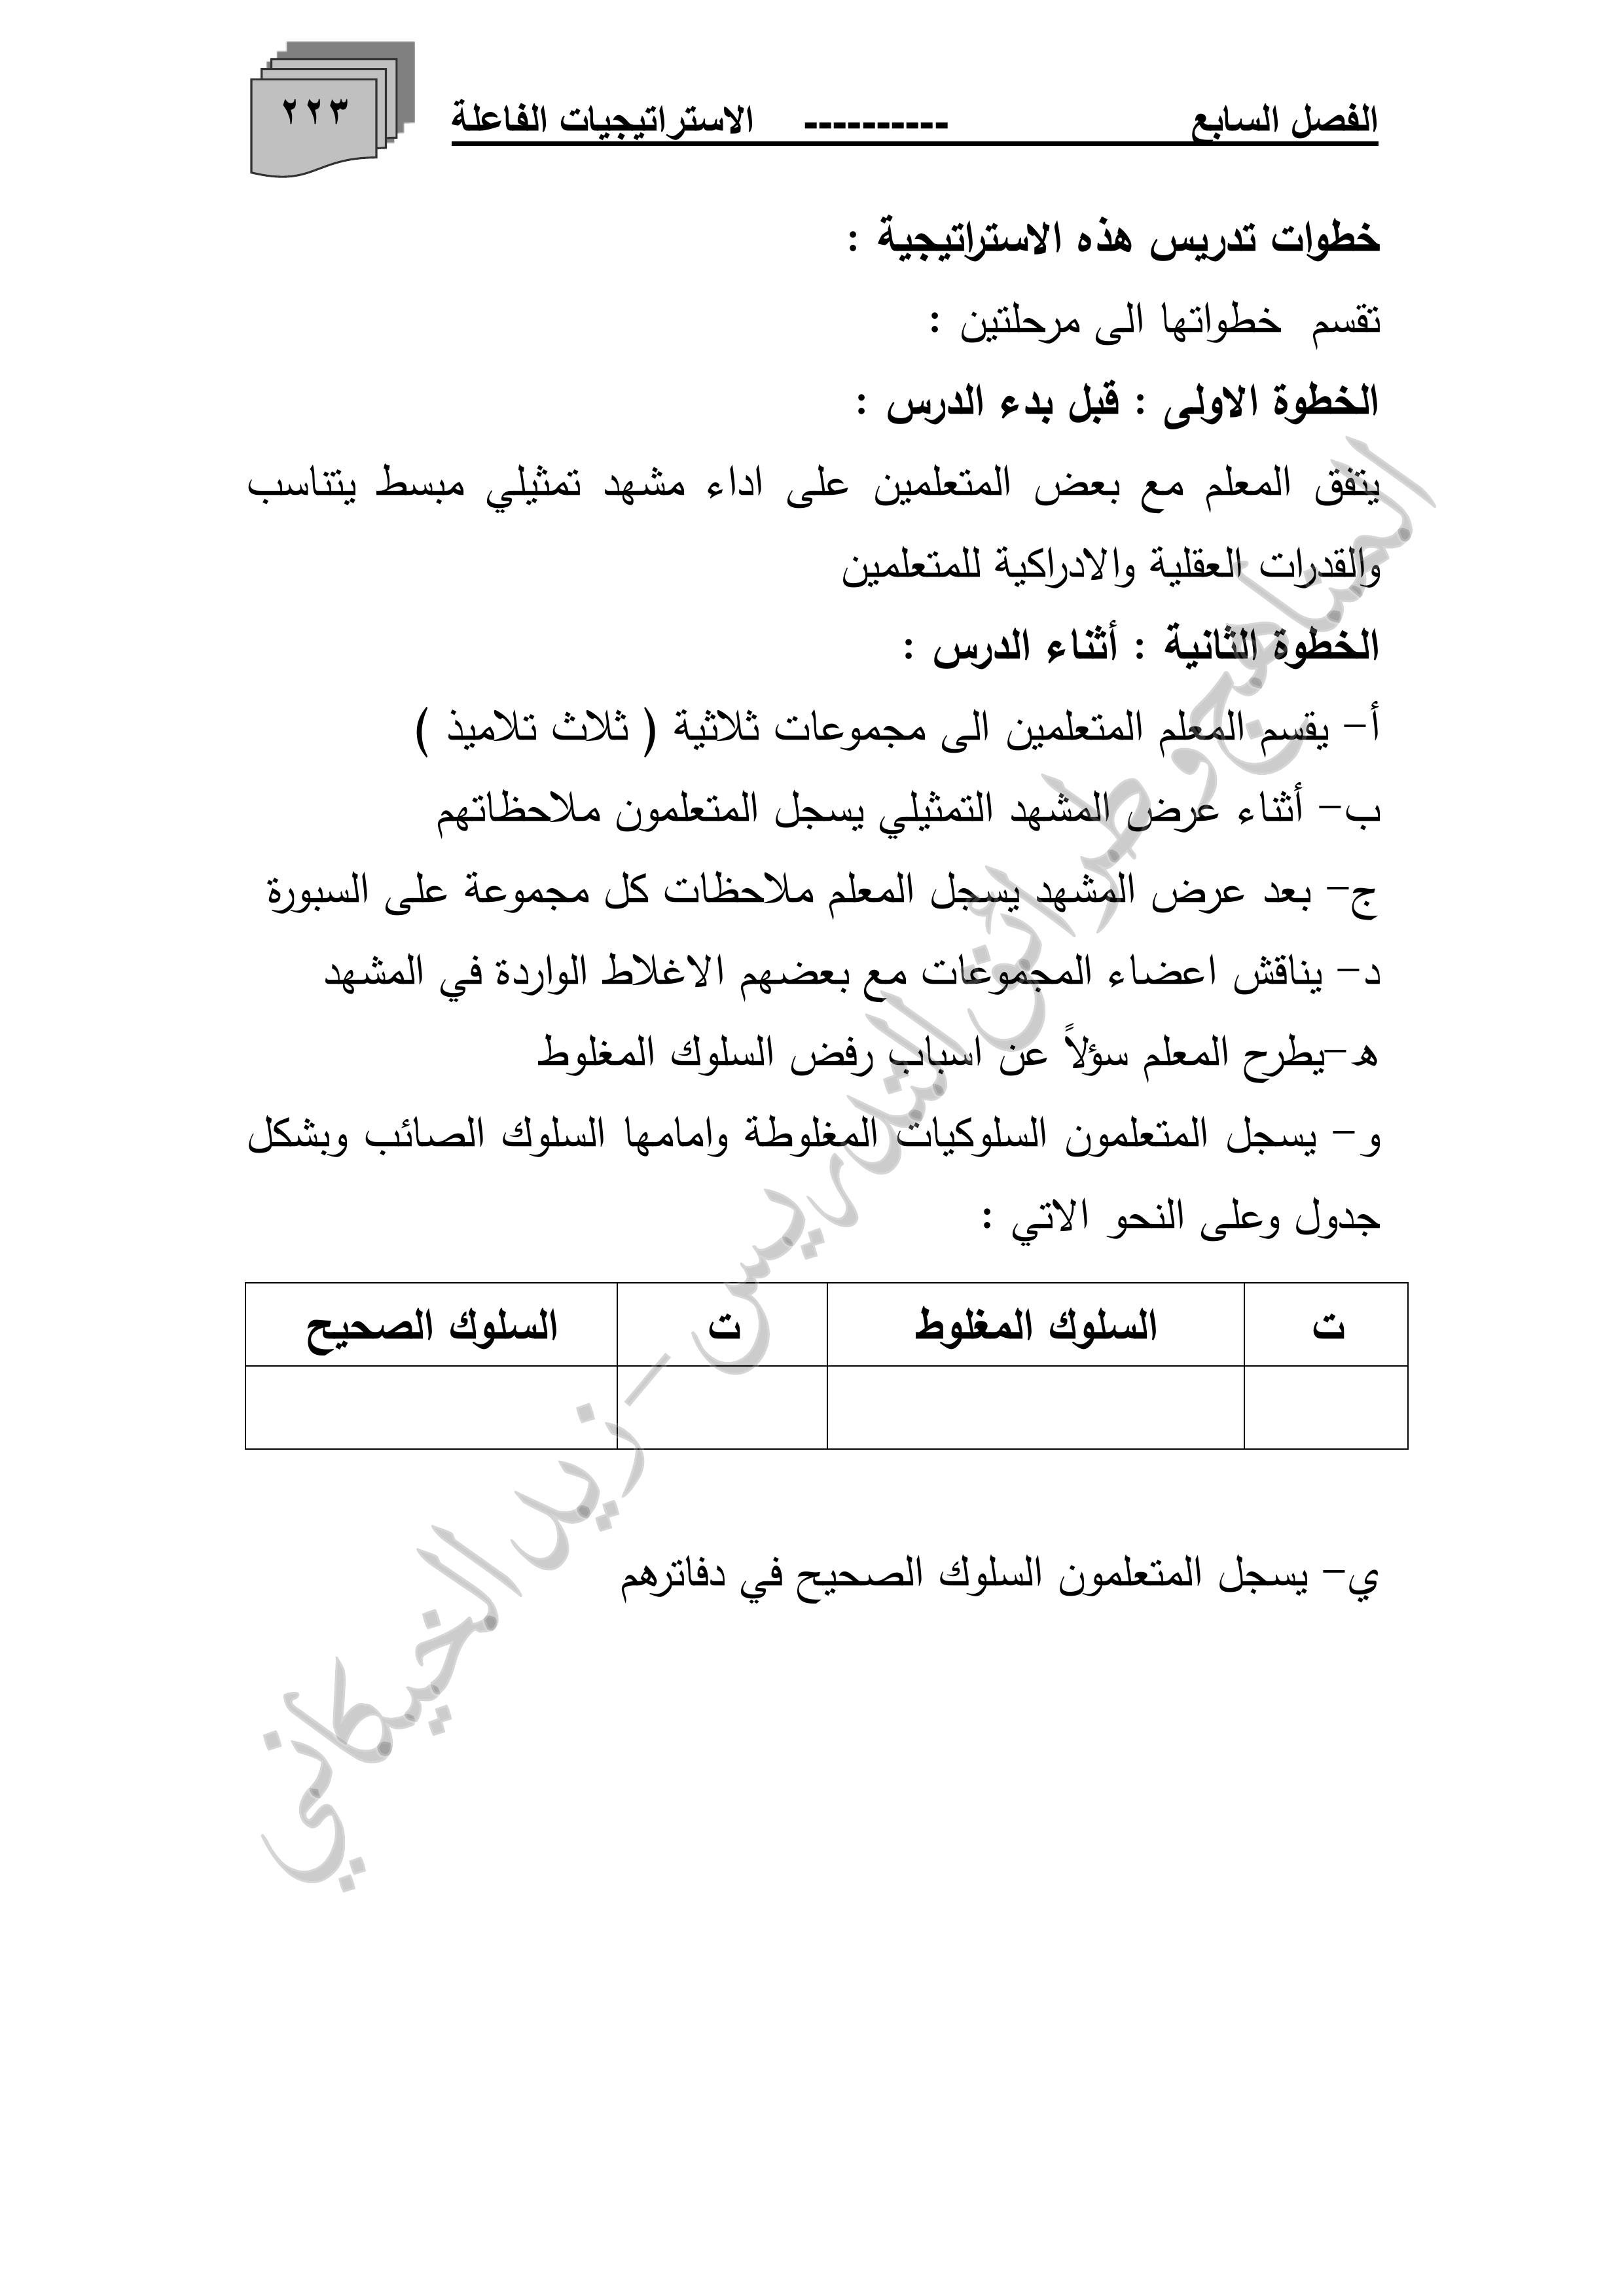 الفصل السابع ---------- الاستراتيجيات الفاعلة
٢٢٣
خطوات تدريس هذه الاستراتيجية :
تقسم خطواتها الى مرحلتين :
الخطوة الاولى : قبل بدء الدرس :
يتفق المعلم مع بعض المتعلمين على اداء مشهد تمثيلي مبسط يتناسب
والقدرات العقلية والادراكية للمتعلمين
الخطوة الثانية : أثناء الدرس :
أ- يقسم المعلم المتعلمين الى مجموعات ثلاثية ( ثلاث تلاميذ )
ب- أثناء عرض المشهد التمثيلي يسجل المتعلمون ملاحظاتهم
ج- بعد عرض المشهد يسجل المعلم ملاحظات كل مجموعة على السبورة
د- يناقش اعضاء المجموعات مع بعضهم الاغلاط الواردة في المشهد
هـ-يطرح المعلم سؤلاً عن اسباب رفض السلوك المغلوط
و- يسجل المتعلمون السلوكيات المغلوطة وامامها السلوك الصائب وبشكل
جدول وعلى النحو الاتي :
ت السلوك المغلوط ت السلوك الصحيح
ي- يسجل المتعلمون السلوك الصحيح في دفاترهم
المناهج وطرائق التدريس - زيد الخيكاني